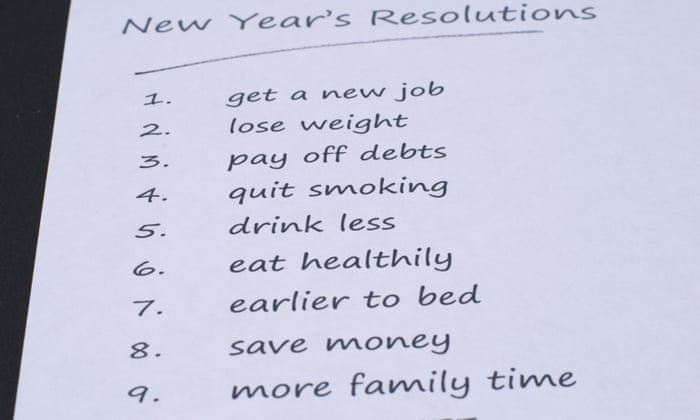 New Year's Resolutions
1. get a new job
2. lose weight
3. pay off debts
4. quit smoking
5. drink less
6. eat healthily
7. earlier to bed
8. save money
9. more family time